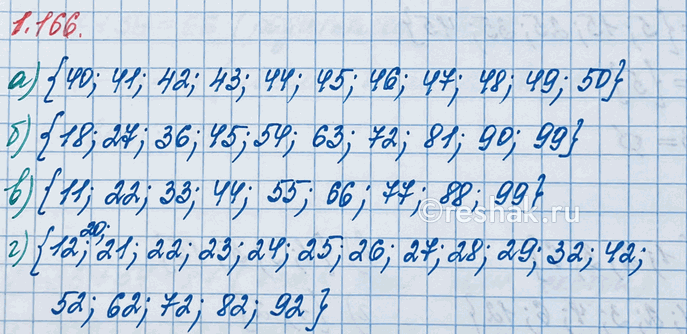 1.166.
а) {40; 41; 42; 43; 44; 45; 46; 47; 48; 49; 50}
б) {18; 27; 36; 45; 54; 63; 72; 81; 90; 99}
в) {11; 22; 33; 44; 55; 66; 77; 88; 99}
©reshak.ru
г) {12; 20; 21; 22; 23; 24; 25; 26; 27; 28; 29; 32; 42;
52; 62; 72; 82; 92}